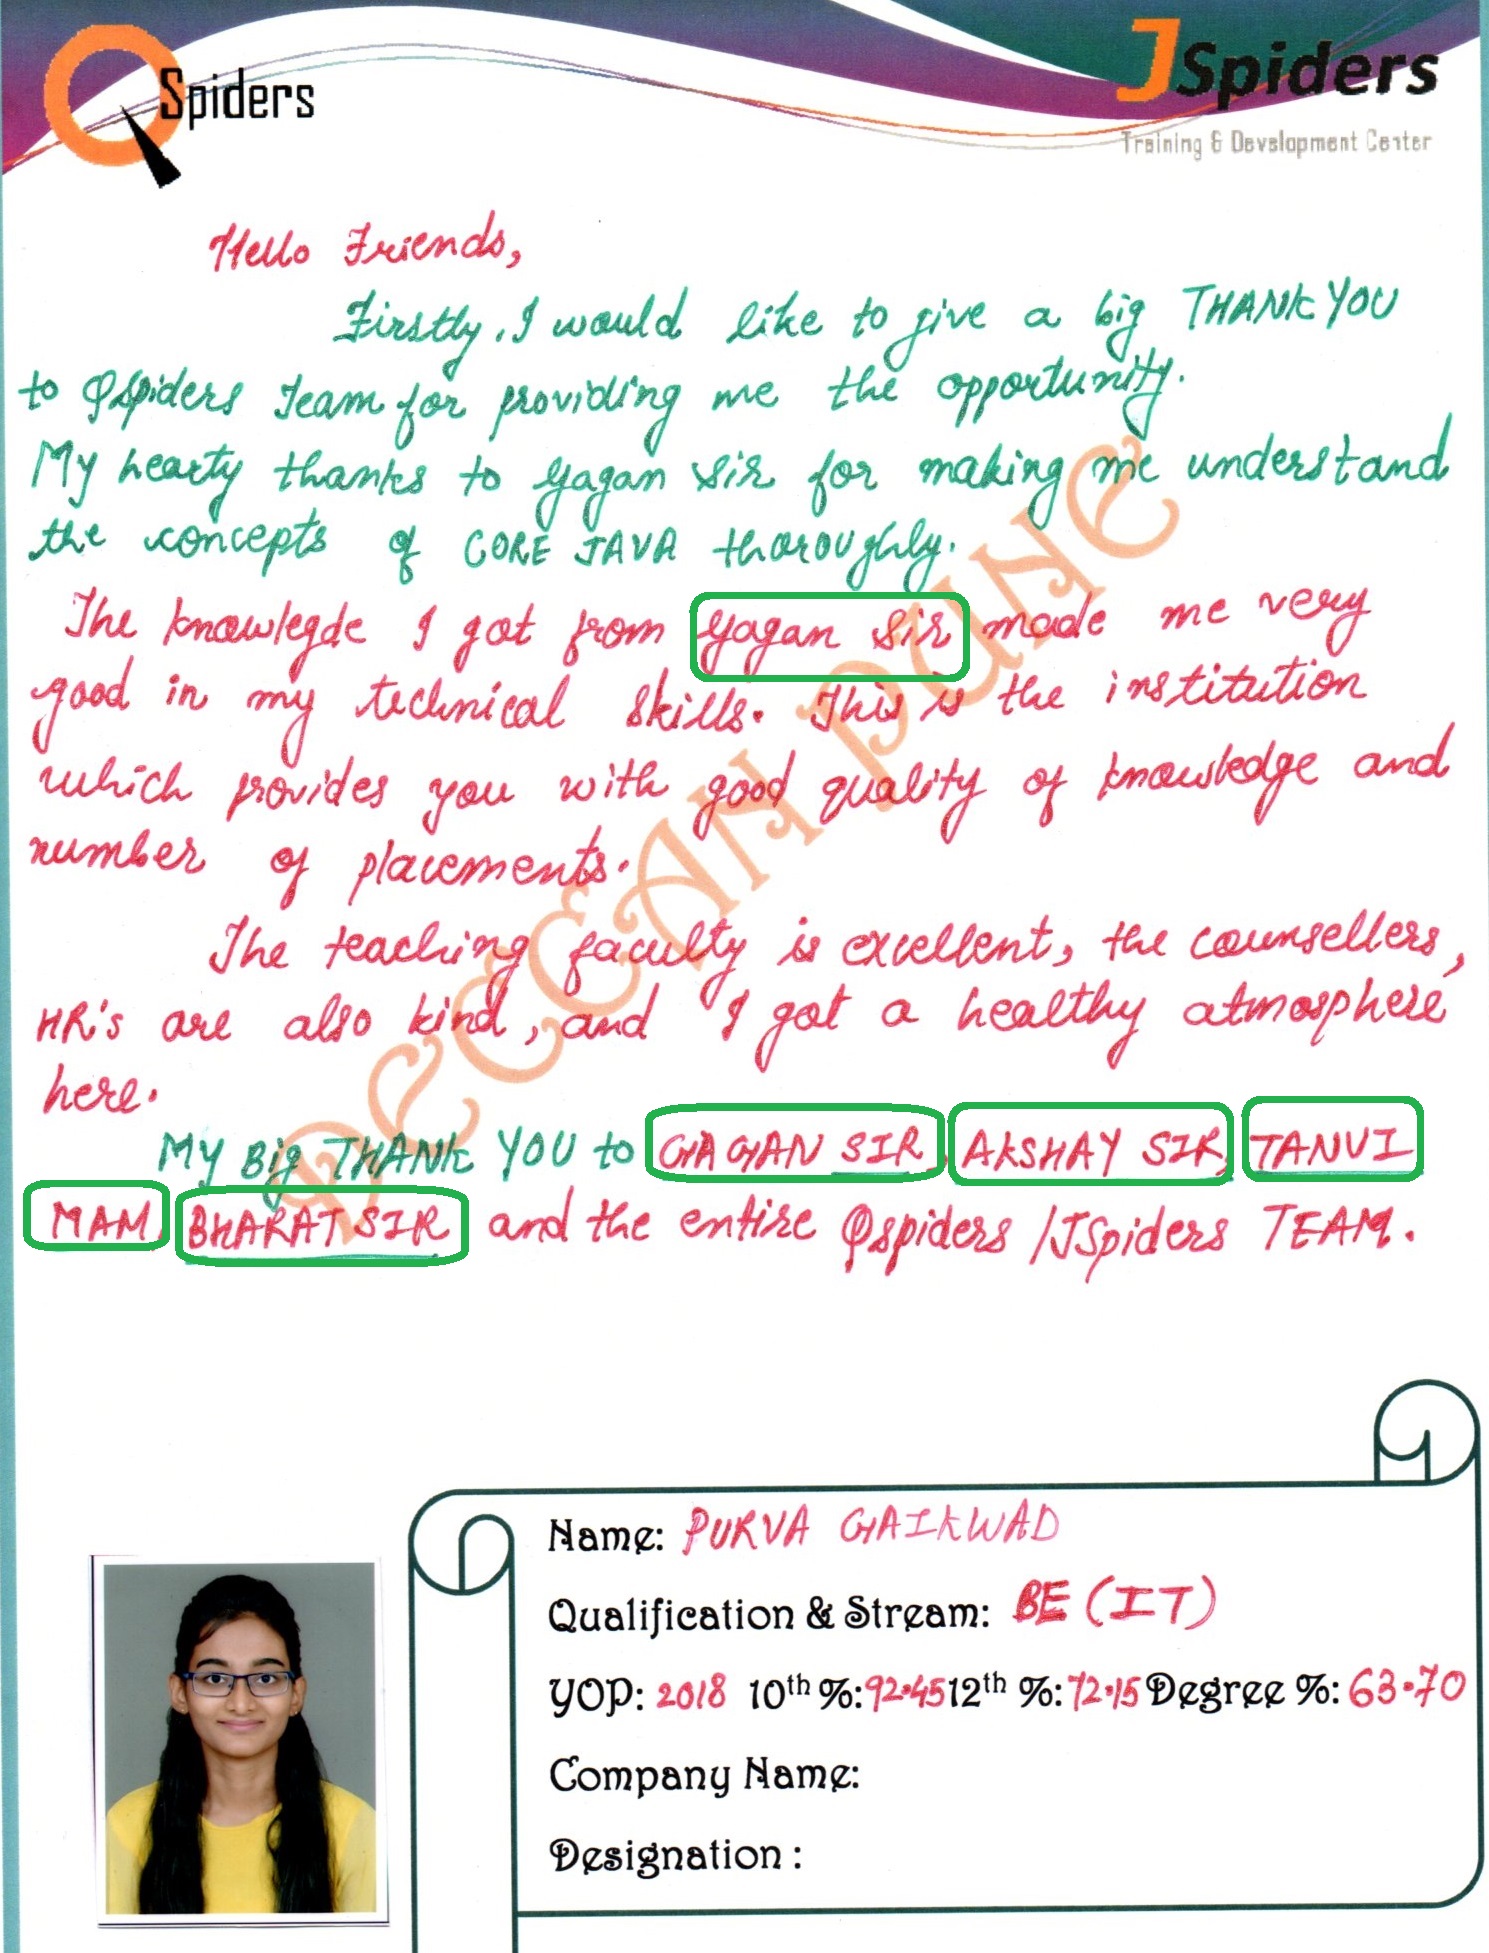 Spiders
JSpiders
Training & Development Center
Hello Friends,
Firstly, I would like to give a big THANK YOU
to QSpiders Team for providing me the opportunity.
My hearty thanks to Gagan Sir for making me understand
the concepts of CORE JAVA thoroughly.
The knowlegde I got from Gagan Sir made me very
good in my technical skills. This is the institution
which provides you with good quality of knowledge and
number of placements.
The teaching faculty is excellent, the counsellers,
HR's are also kind, and I got a healthy atmosphere
here.
My Big THANK YOU to GAGAN SIR, AKSHAY SIR, TANVI
MAM, BHARAT SIR and the entire Qspiders /JSpiders TEAM.
DECCAN PUNE
Name: PURVA GAIKWAD
Qualification & Stream: BE (IT)
YOP: 2018 10th %: 92.45 12th %: 72.15 Degree %: 63.70
Company Name:
Designation :